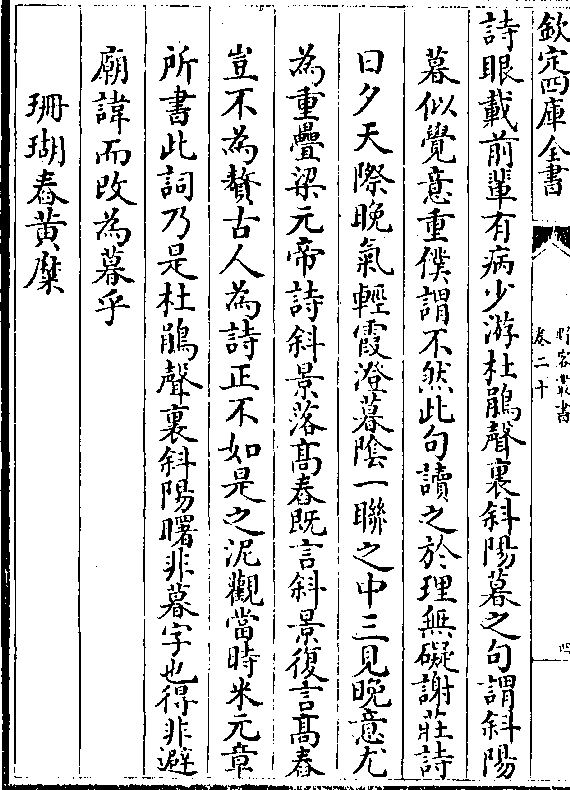 欽定四庫全書
野客叢書
卷二十
四
詩眼載前輩有病少游杜鵑聲裏斜陽暮之句謂斜陽
暮似覺意重僕謂不然此句讀之於理無礙謝莊詩
日夕天際晚氣輕霞澄暮陰一聯之中三見晚意尤
為重疊梁元帝詩斜景落髙舂既言斜景復言髙舂
豈不為贅古人為詩正不如是之泥觀當時米元章
所書此詞乃是杜鵑聲裏斜陽曙非暮字也得非避
廟諱而改為暮乎
珊瑚舂黃糜